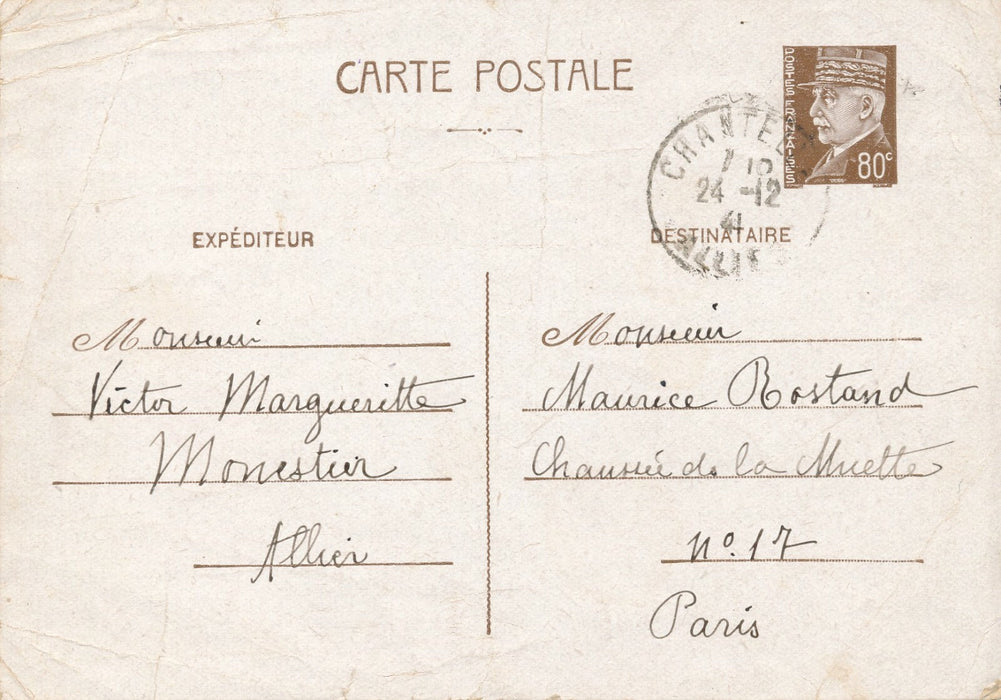 CARTE POSTALE
POSTES FRANÇAISES
80c
CHANTELLE
7 10
24 -12
41
ALLIER
EXPÉDITEUR
Monsieur
Victor Margueritte
Monestier
Allier
DESTINATAIRE
Monsieur
Maurice Rostand
Chaussée de la Muette
No. 17
Paris